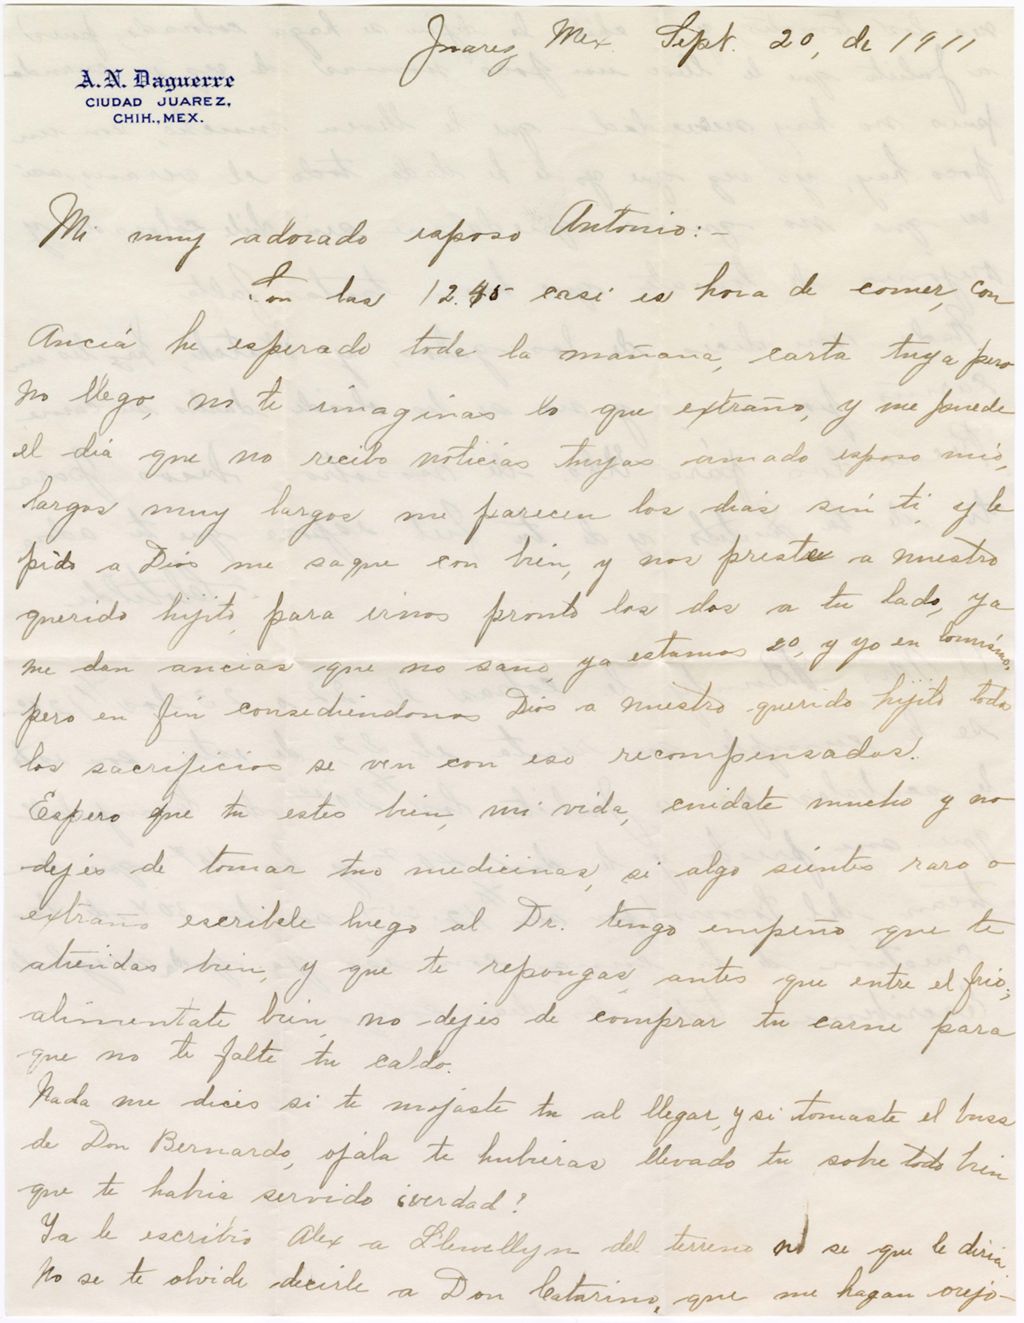 Juarez, Mex. Sept. 20, de 1911
A. N. Daguerre
CIUDAD JUAREZ,
CHIH., MEX.
Mi muy adorado esposo Antonio:-
Son las 12.45 casi es hora de comer, con
Anciá he esperado toda la mañana, carta tuya pero
no llego, no te imaginas lo que extraño, y me puede
el día que no recibo noticias tuyas amado esposo mio,
largos muy largos me parecen los dias sin ti, y le
pido a Dios me saque con bien, y nos preste a nuestro
querido hijito, para irnos pronto los dos a tu lado, ya
me dan ancias que no sano, ya estamos 20, y yo en lo mismo,
pero en fin consediendonos Dios a nuestro querido hijito todos
los sacrificios se ven con eso recompensados.
Espero que tu estes bien, mi vida, cuidate mucho y no
dejes de tomar tus medicinas, si algo sientes raro o
extraño escribele luego al Dr. tengo empeño que te
atiendas bien, y que te repongas, antes que entre el frio;
alimentate bien, no dejes de comprar tu carne para
que no te falte tu caldo.
Nada me dices si te mojaste tu al llegar, y si tomaste el buss
de Don Bernardo, ojala te hubieras llevado tu sobre todo bien
que te habria servido ¿verdad?
Ya le escribio Alex a Llewellyn del terreno no se que le diria.
No se te olvide decirle a Don Catarino, que me hagan orejo-